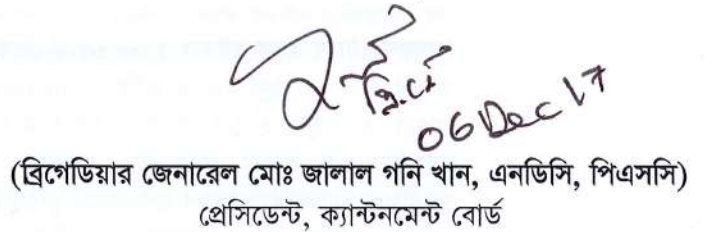 06 Dec 17
(ব্রিগেডিয়ার জেনারেল মোঃ জালাল গনি খান, এনডিসি, পিএসসি)
প্রেসিডেন্ট, ক্যান্টনমেন্ট বোর্ড